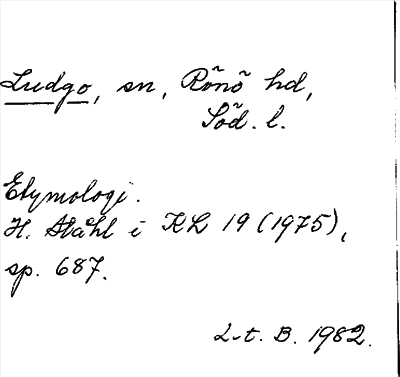 Ludgo, sn, Rönö hd,
Söd. l.
Etymologi.
H. Ståhl i KL 19 (1975),
sp. 687.
L-t. B. 1982.